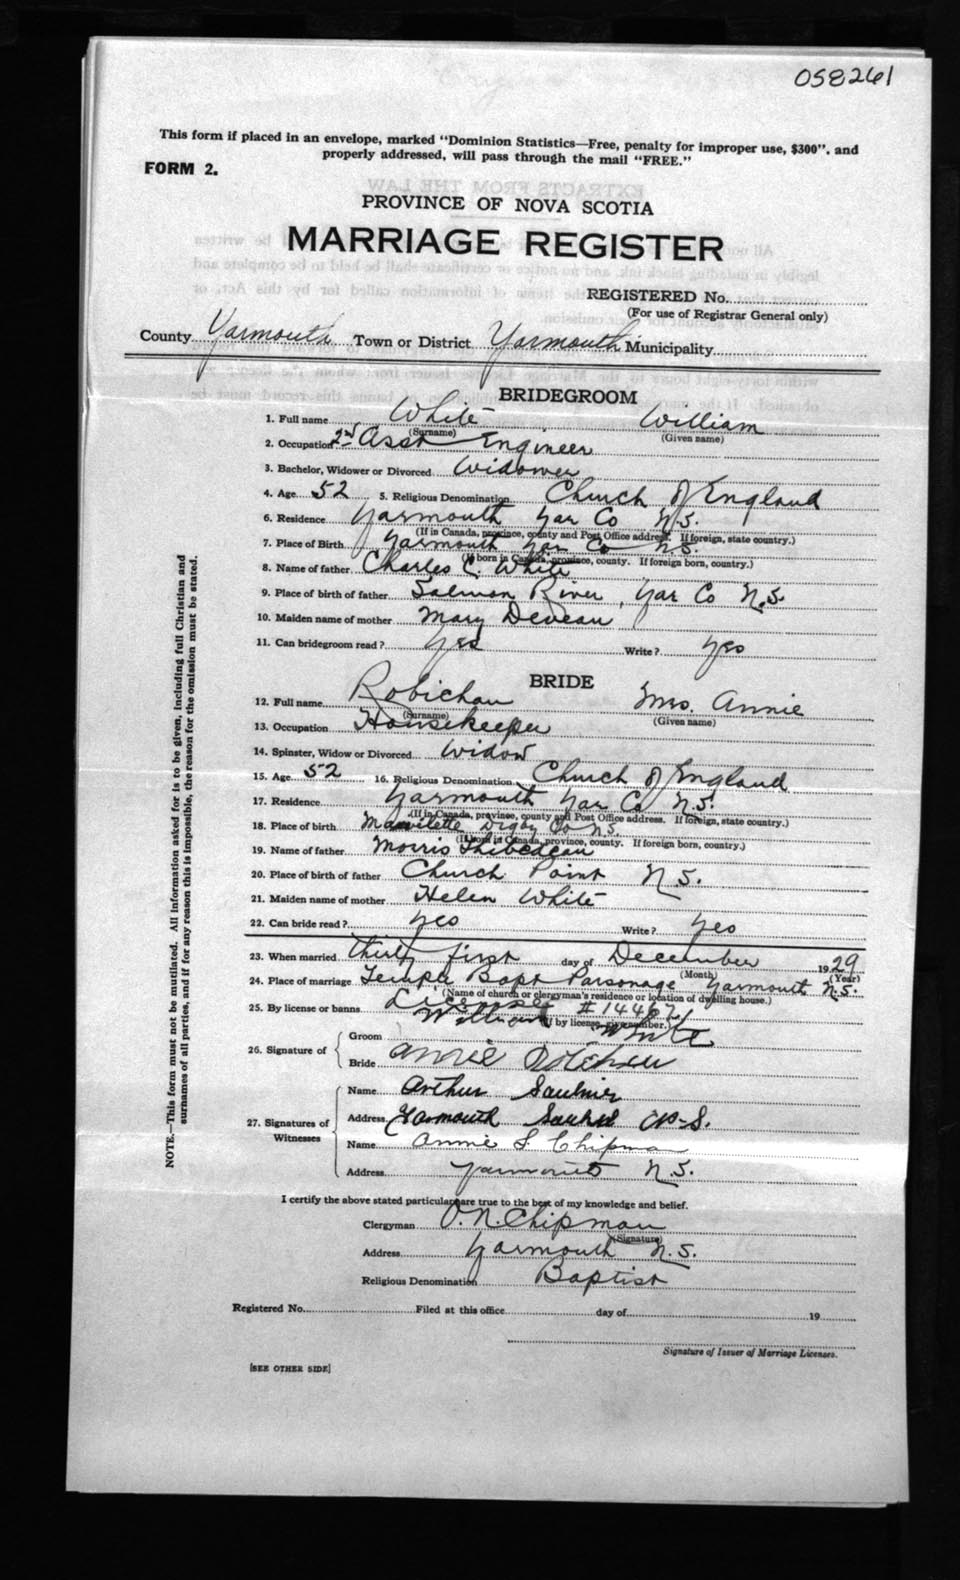 058261
This form if placed in an envelope, marked "Dominion Statistics—Free, penalty for improper use, $300", and
properly addressed, will pass through the mail "FREE."
FORM 2.
PROVINCE OF NOVA SCOTIA
MARRIAGE REGISTER
REGISTERED No.
(For use of Registrar General only)
County Yarmouth Town or District Yarmouth Municipality
BRIDEGROOM
1. Full name White William
(Surname) (Given name)
2. Occupation 2nd Asst Engineer
3. Bachelor, Widower or Divorced Widower
4. Age 52 5. Religious Denomination Church of England
6. Residence Yarmouth Yar Co N.S.
(If in Canada, province, county and Post Office address. If foreign, state country.)
7. Place of Birth Yarmouth Yar Co N.S.
(If born in Canada, province, county. If foreign born, country.)
8. Name of father Charles C. White
9. Place of birth of father Salmon River, Yar Co N.S.
10. Maiden name of mother Mary Deveau
11. Can bridegroom read? Yes Write? Yes
BRIDE
12. Full name Robichau Mrs. Annie
(Surname) (Given name)
13. Occupation Housekeeper
14. Spinster, Widow or Divorced Widow
15. Age 52 16. Religious Denomination Church of England
17. Residence Yarmouth Yar Co N.S.
(If in Canada, province, county and Post Office address. If foreign, state country.)
18. Place of birth Mavilette Digby Co N.S.
(If born in Canada, province, county. If foreign born, country.)
19. Name of father Morris Thibedeau
20. Place of birth of father Church Point N.S.
21. Maiden name of mother Helen White
22. Can bride read? Yes Write? Yes
23. When married thirty first day of December 1929
(Month) (Year)
24. Place of marriage Temple Bapt Parsonage Yarmouth N.S.
(Name of church or clergyman's residence or location of dwelling house.)
25. By license or banns License #14467
(If by license, give number.)
26. Signature of
Groom William White
Bride Annie
27. Signatures of Witnesses
Name Arthur Saulnier
Address Yarmouth South N.S.
Name Annie S. Chipman
Address Yarmouth N.S.
I certify the above stated particulars are true to the best of my knowledge and belief.
Clergyman O. N. Chipman
(Signature)
Address Yarmouth N.S.
Religious Denomination Baptist
Registered No. Filed at this office day of 19
Signature of Issuer of Marriage Licenses.
[SEE OTHER SIDE]
NOTE.—This form must not be mutilated. All information asked for is to be given, including full Christian and
surnames of all parties, and if for any reason this is impossible, the reason for the omission must be stated.